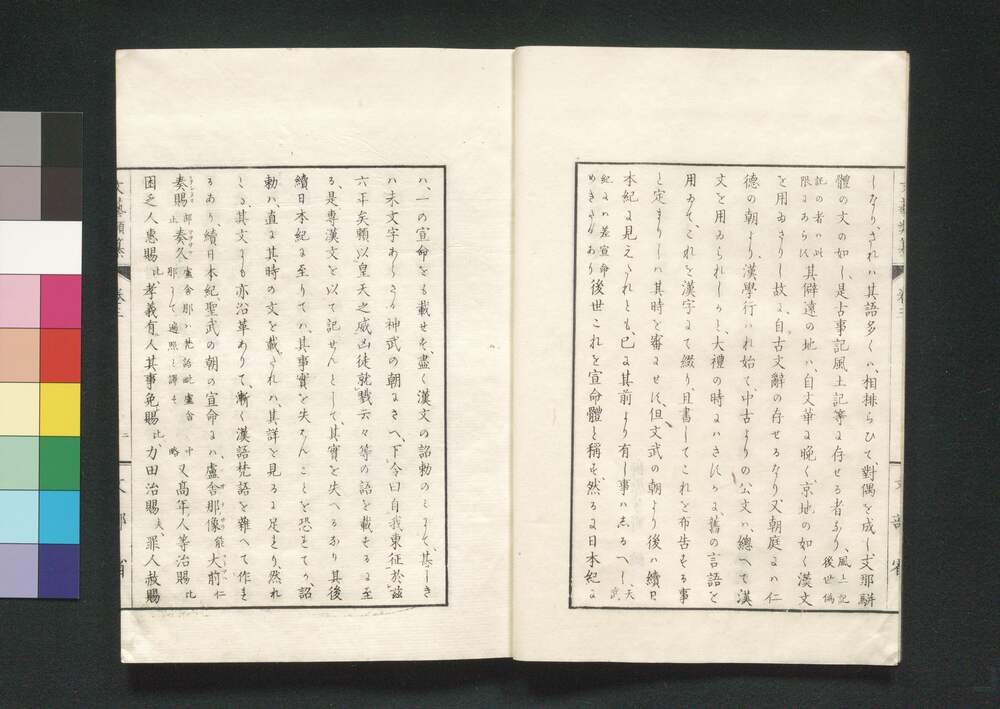 しなり、されハ其語多くハ、相排らひて對偶を成し、支那駢
體の文の如し、是古事記風土記等に存せる者あり、風土記後世偽
記の者ハ此限にあらす其僻遠の地ハ、自文華に晩く、京地の如く漢文
を用ゐさりし故に、自古文辭の存せるなり、又朝庭にハ仁
德の朝より、漢學行ハれ始て、中古よりの公文ハ、總へて漢
文を用ゐられしかと、大禮の時にハさすかに舊の言語を
用ゐて、これを漢字にて綴り、且書してこれを布告する事
と定まりしハ其時を審にせす、但文武の朝より後ハ續日
本紀に見えたれとも、已に其前より有し事ハしるへし、天武
紀にハ差宣命めきたりあり後世これを宣命體と稱す、然るに日本紀に
ハ、一の宣命をも載せす、盡く漢文の詔勅のミにて、甚しき
ハ未文字あらさる神武の朝にさへ、下令曰自我東征於茲
六年矣頼以皇天之威凶徒就戮云々等の語を載するに至
る、是専漢文を以て記せんとして、其實を失へるなり、其後
續日本紀に至りてハ、其事實を失ハんことを恐れてか、詔
勅ハ、直に其時の文を載たれハ、其詳を見るに足まり、然れ
とも、其文にも亦沿革ありて、漸く漢語梵語を雜へて作れ
るあり、續日本紀、聖武の朝の宣命にハ盧舍那像能大前仁
奏賜部止奏久盧舍那ハ梵語毗盧舍那にて遍照と譯す中略又高年人等治賜比
困乏人惠賜比孝義有人其事免賜比力田治賜夫罪人赦賜
文藝類纂
卷三
二
文部省